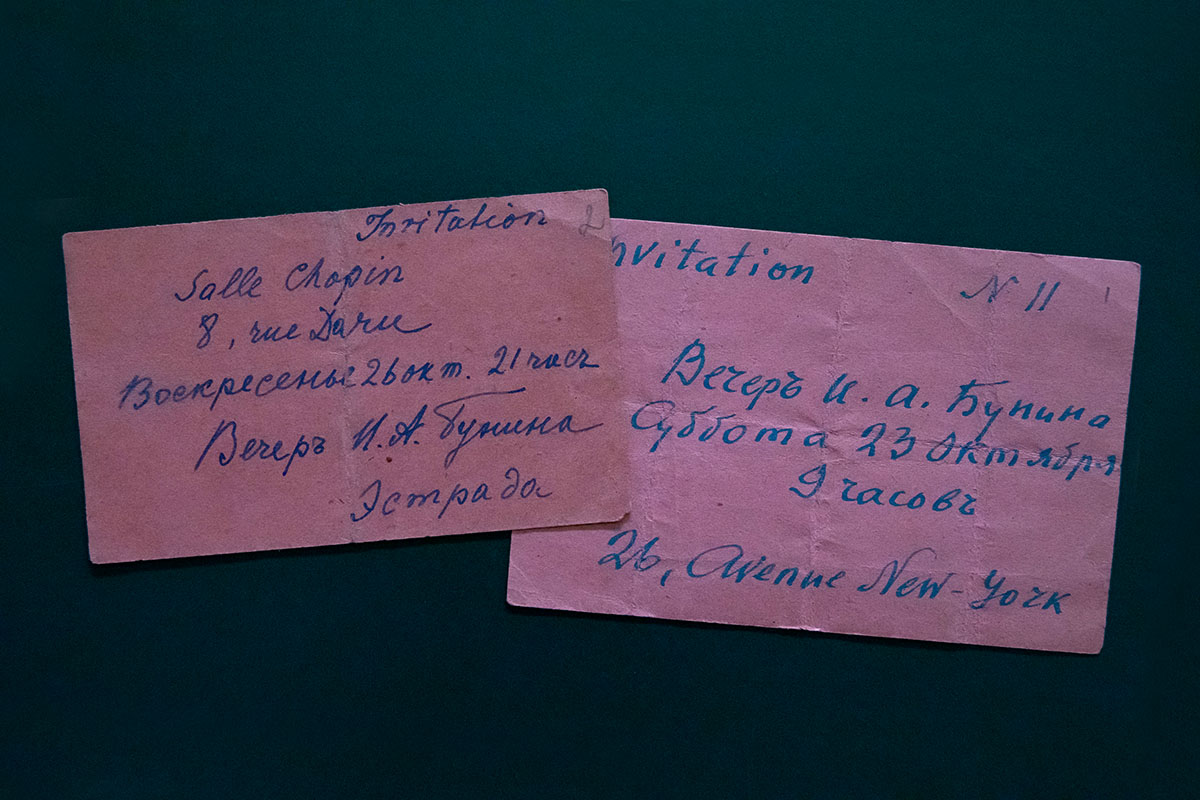 Invitation 2
Salle Chopin
8, rue Дарu
Воскресенье 26 окт. 21 часъ
Вечеръ И. А. Бунина
Эстрада
nvitation N 11 1
Вечеръ И. А. Бунина
Суббота 23 Октября
9 часовъ
26, Avenue New-York